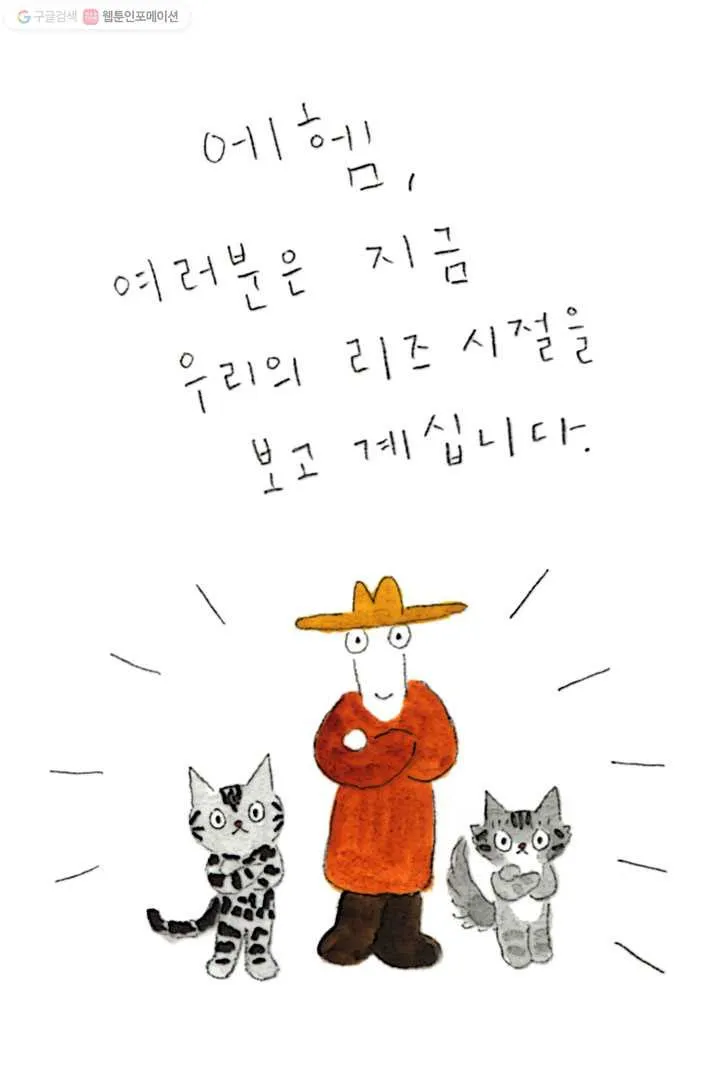 구글검색 웹툰인포메이션
에헴,
여러분은 지금
우리의 리즈 시절을
보고 계십니다.